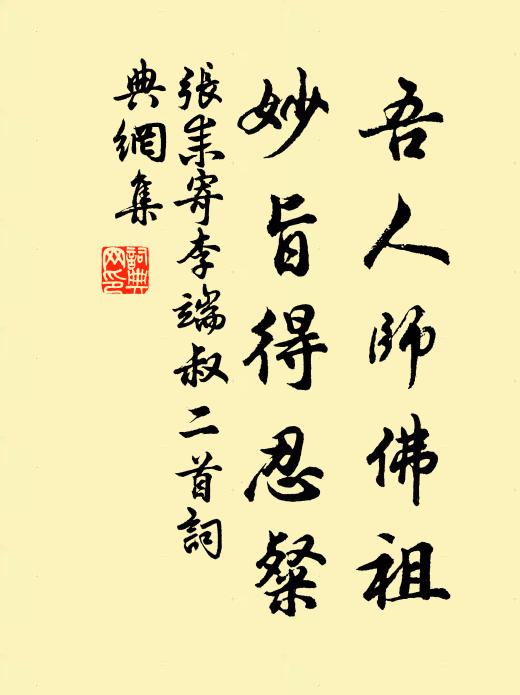 吾人師佛祖
妙旨得忍粲
張耒寄李端叔二首詞
典網集
詞典
网印